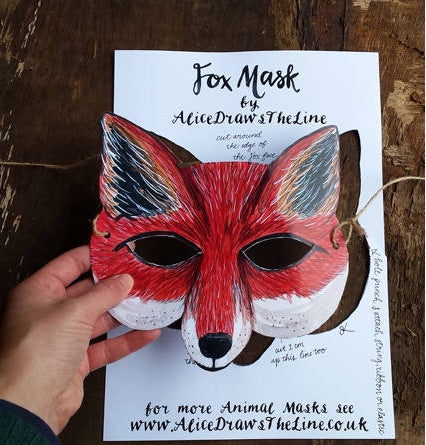 Fox Mask
by
AliceDrawsTheLine
cut around
the edge of
the fox face
hole punch, & attach string, ribbon or elastic
cut 1 cm
up this line too
for more Animal Masks see
www.AliceDrawsTheLine.co.uk